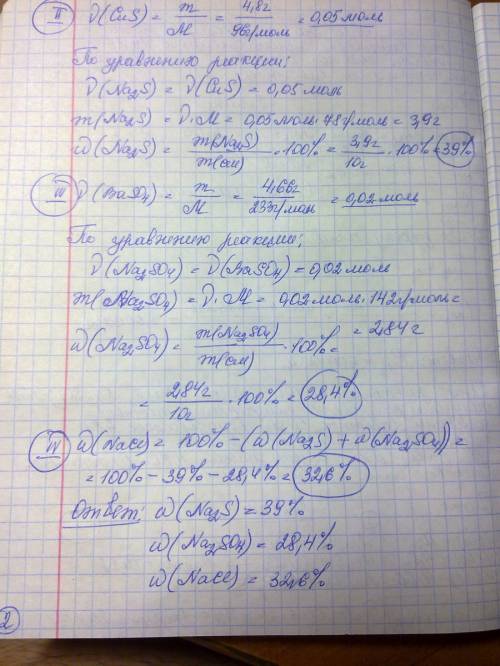 II ν(CuS) = m/M = 4,8г/96г/моль = 0,05 моль
По уравнению реакции:
ν(Na₂S) = ν(CuS) = 0,05 моль
m(Na₂S) = ν·M = 0,05 моль·78г/моль = 3,9г
ω(Na₂S) = m(Na₂S)/m(см)·100% = 3,9г/10г·100% = 39%
III ν(BaSO₄) = m/M = 4,66г/233г/моль = 0,02 моль
По уравнению реакции:
ν(Na₂SO₄) = ν(BaSO₄) = 0,02 моль
m(Na₂SO₄) = ν·M = 0,02 моль·142г/моль =
= 2,84 г
ω(Na₂SO₄) = m(Na₂SO₄)/m(см)·100% =
= 2,84г/10г·100% = 28,4%
IV ω(NaCl) = 100% - (ω(Na₂S) + ω(Na₂SO₄)) =
= 100% - 39% - 28,4% = 32,6%
Ответ: ω(Na₂S) = 39%
ω(Na₂SO₄) = 28,4%
ω(NaCl) = 32,6%
2